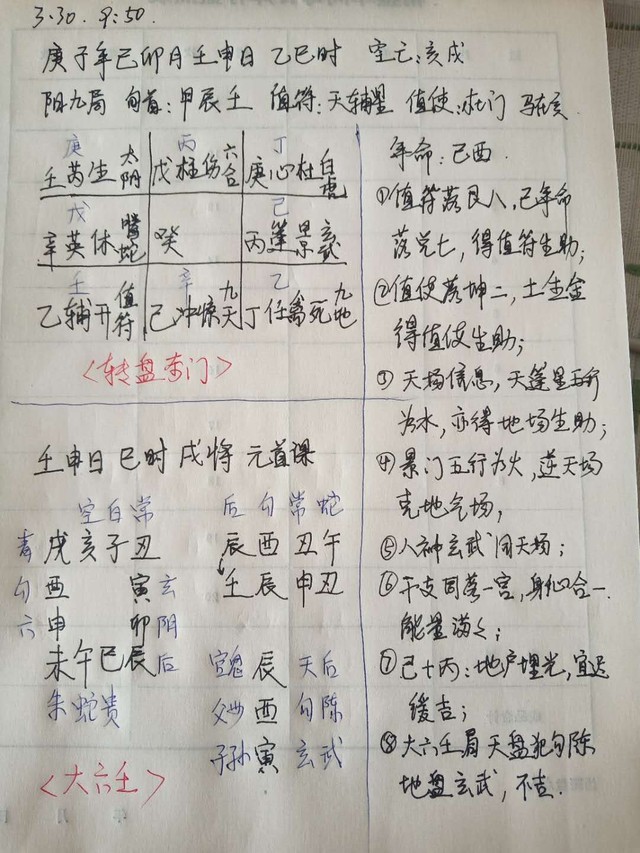 3.30. 9:50.
庚子年己卯月壬申日 乙巳时 空亡:亥戌
阳九局 旬首:甲辰壬 值符:天辅星 值使:杜门 马在亥
庚 丙 丁
壬芮生太阴 戊柱伤六合 庚心杜白虎
戊 己
辛英休螣蛇 癸 丙蓬景玄武
壬 辛 乙
乙辅开值符 己冲惊九天 丁任禽死九地
<转盘奇门>
壬申日 巳时 戌将 元首课
空白常 后勾常蛇
青戌亥子丑 辰酉丑午
勾酉 寅玄 壬辰申丑
六申 卯阴
未午巳辰后 官鬼辰 天后
朱蛇贵 父母酉 勾陈
子孙寅 玄武
<大六壬>
年命:己酉.
①值符落艮八,己年命
落兑七,得值符生助;
②值使落坤二,土生金
得值使生助;
③天场信息,天蓬星五行
为水,亦得地场生助;
④景门五行为火,逆天场
克地气场,
⑤人神玄武同天场;
⑥干支同落一宫,身心合一.
能量满之;
⑦己+丙:地户埋光,宜迟
缓吉;
⑧大六壬局天盘犯勾陈
地盘玄武,不吉.